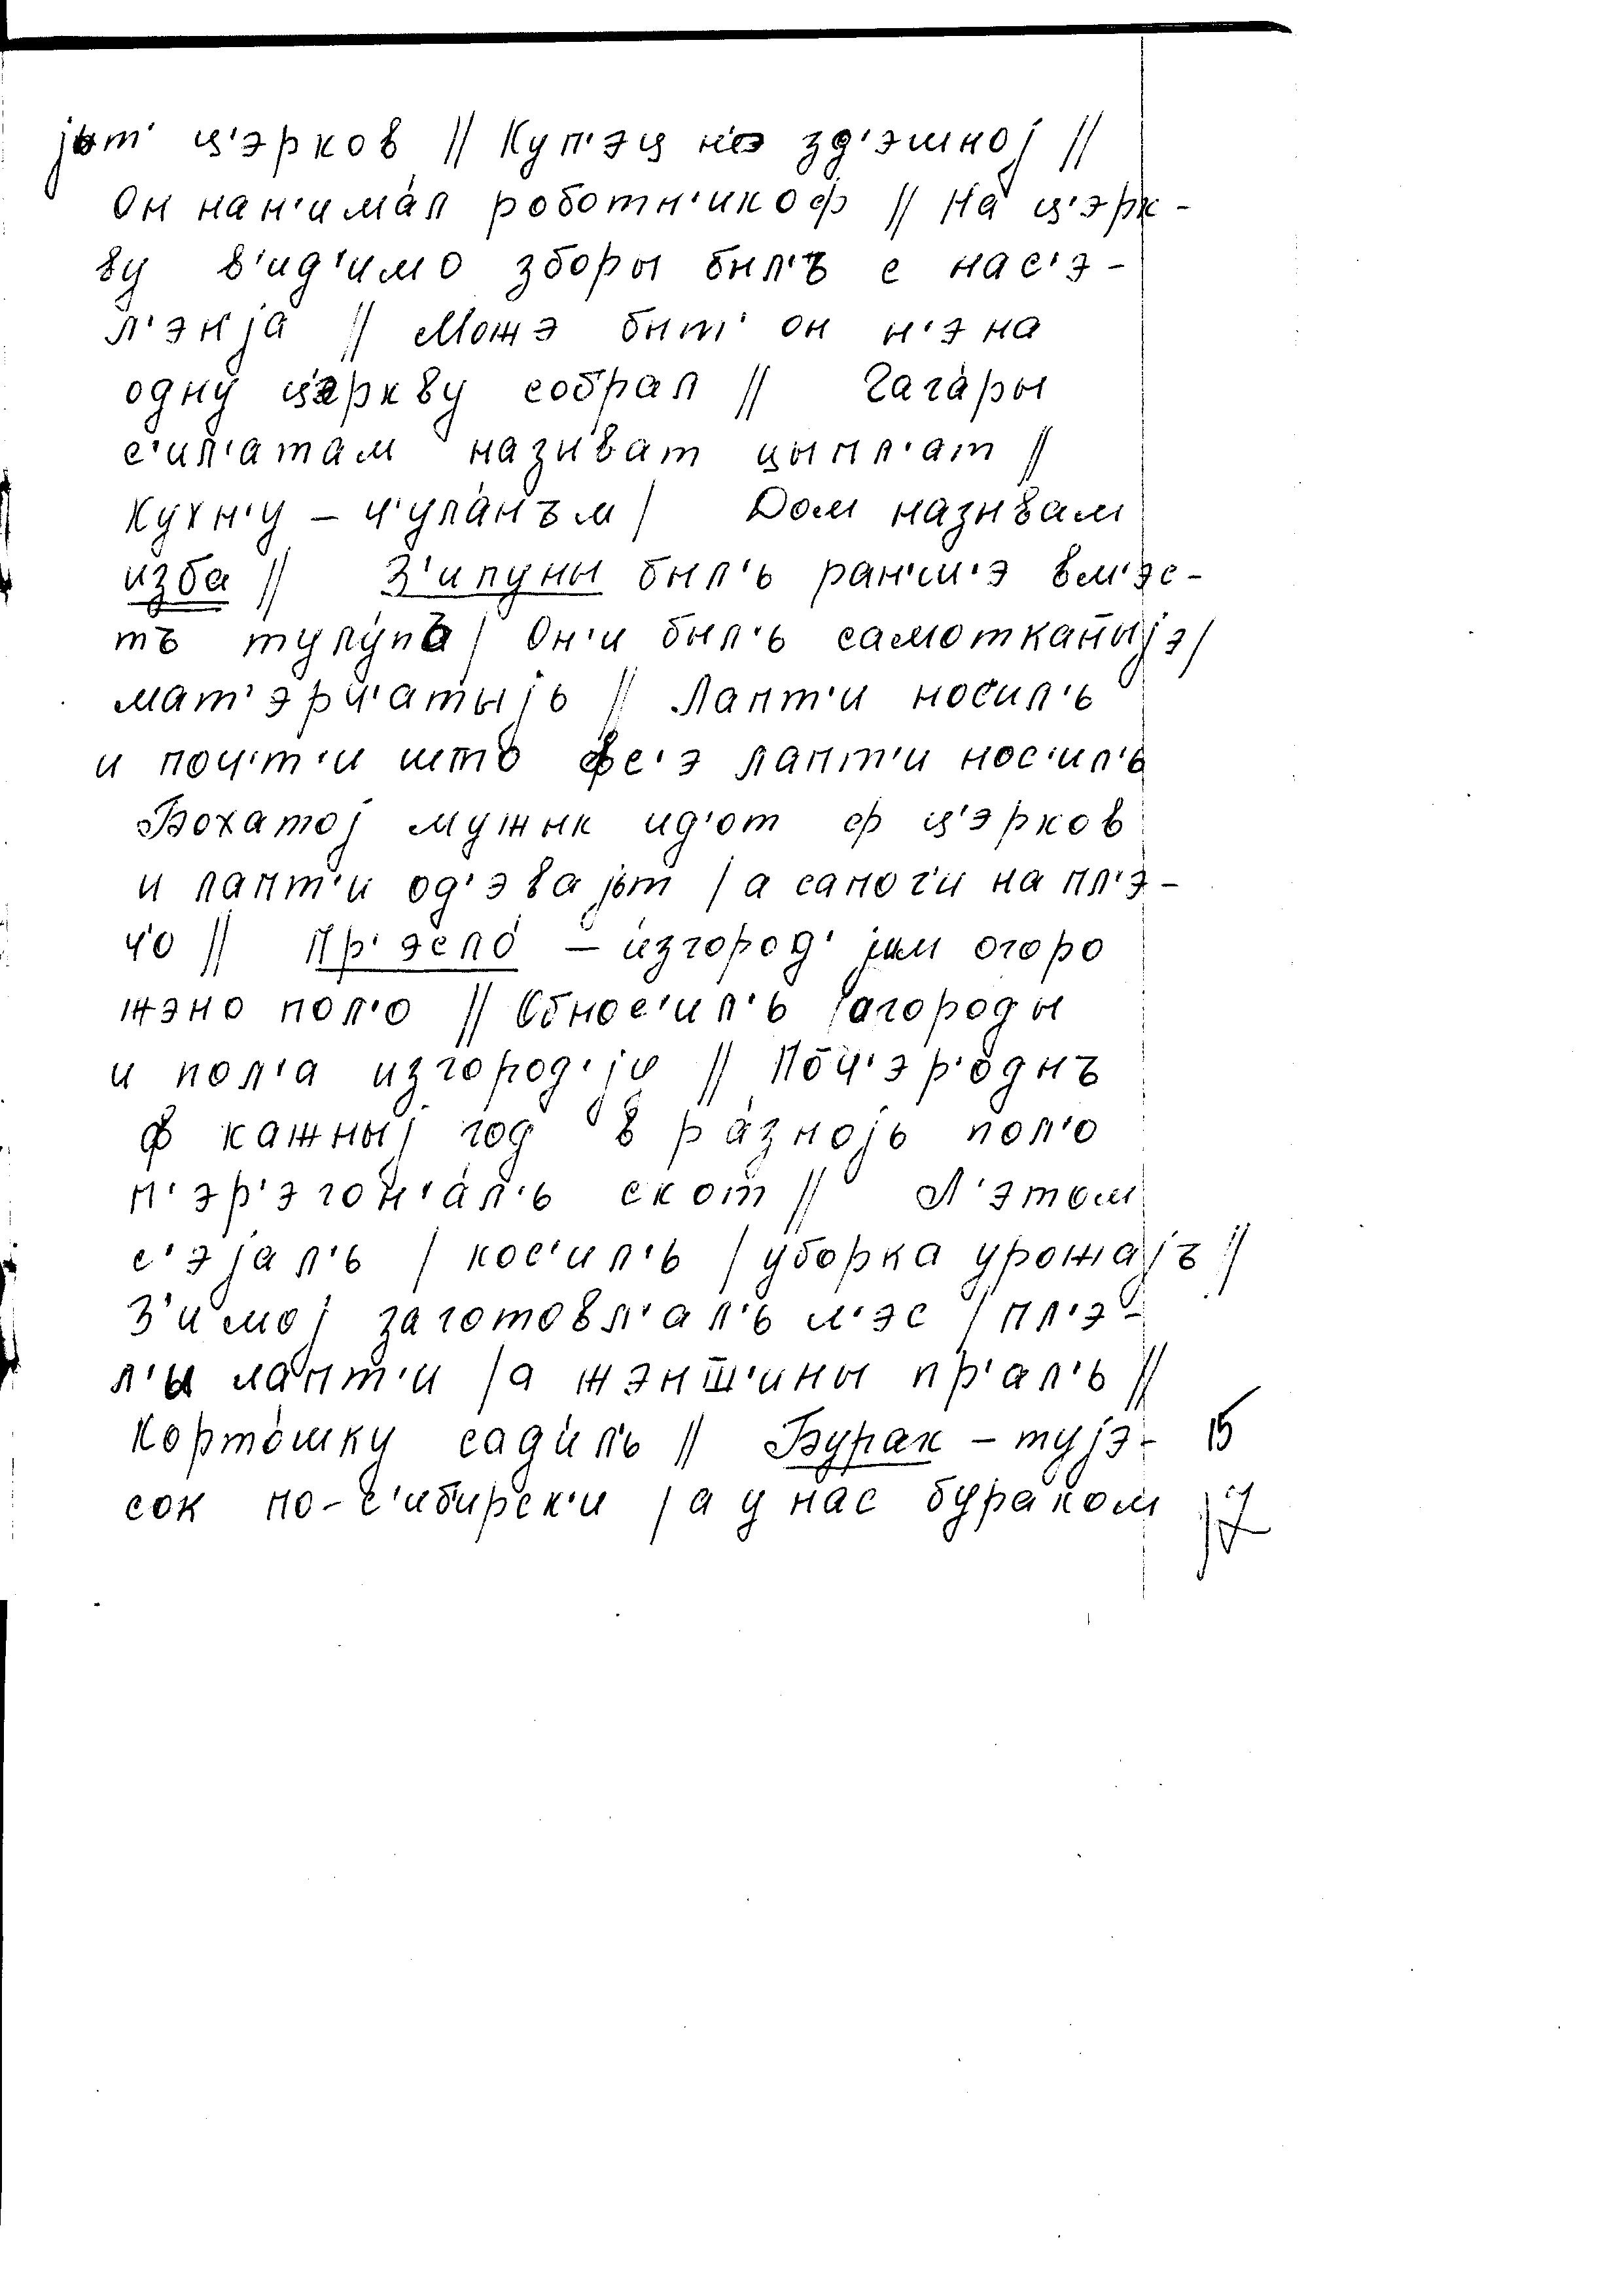 jьт' ц'эрков // Куп'эц н'э зд'эшной //
Он нан'има́л роботн'икоф // На́ ц'эрк-
ву в'ид'имо зборы был'ъ с нас'э-
л'э́нjа // Можэ быт' он н'э на
одну́ цэркву собрал // Гага́ры
с'ил'атам назы́ват цыпл'ат //
Кухн'у – ч'ула́нъм / Дом назы́вам
изба // З'ипуны был'ь ран'ш'э вм'эс-
тъ тулу́па / Он'и был'ь самотка́ныjэ /
мат'эрч'атыjь // Лапт'и носил'ь
и поч'т'и што фс'э лапт'и нос'ил'ь
Бохатоj мужык ид'от ф ц'эрков
и лапт'и од'эваjьт / а сапог'и на пл'э-
ч'о // Пр'эсло́ – и́згород'jьм огоро
жэно пол'о // Обнос'ил'ь огороды
и пол'а изгород'jу // Поч'эр'о́днъ
ф кажныj год в ра́зноjь пол'о
п'эр'эгон'а́л'ь скот // Л'этом
с'эjал'ь / кос'ил'ь / уборка урожаjъ //
З'имоj заготовл'ал'ь л'эс / пл'э-
л'и лапт'и / а жэнш̅'ины пр'ал'ь //
Корто́шку сади́л'ь // Бурак – туjэ-
сок по-с'ибирск'и / а у нас бураком
15
17